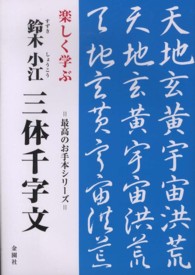 天地玄黄宇宙洪荒
天地玄黄宇宙洪荒
天地玄黄宇宙洪荒
楽しく学ぶ
=最高のお手本シリーズ=
三体千字文
すずき しょうこう
鈴木 小江
金園社